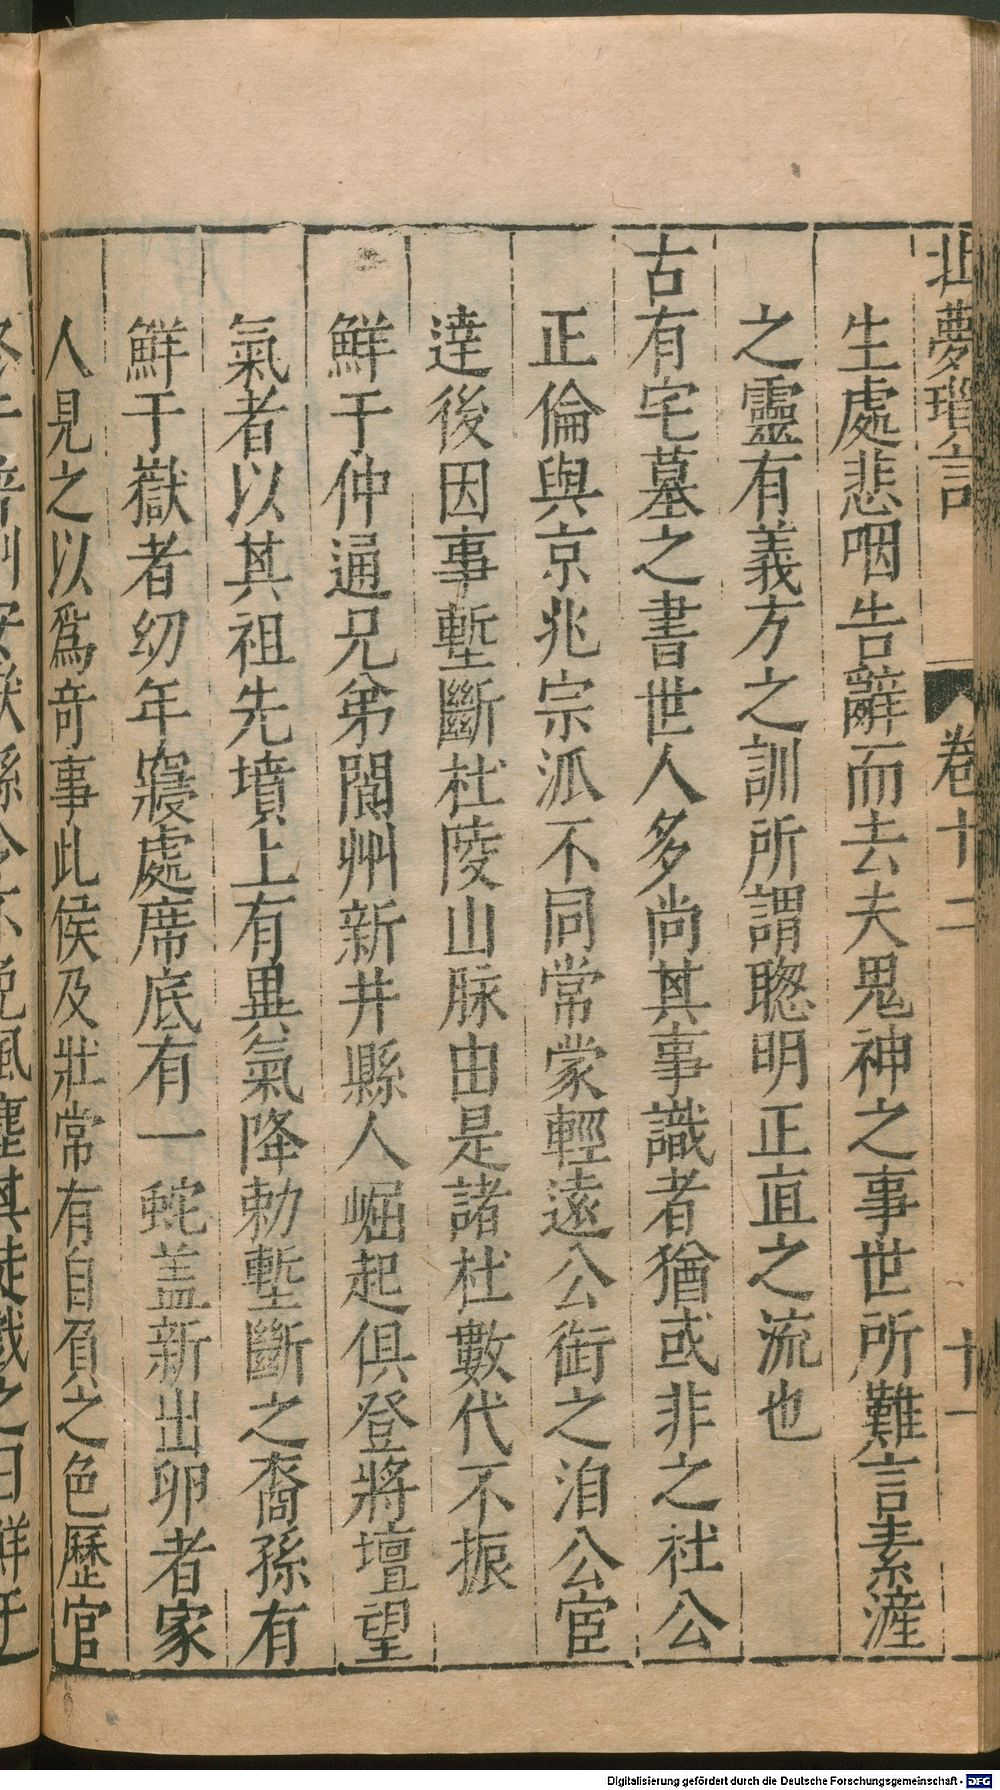 北夢瑣言 卷十二 十一
生處悲咽告辭而去夫鬼神之事世所難言素滻
之靈有義方之訓所謂聦明正直之流也
古有宅墓之書世人多尚其事識者猶或非之社公
正倫與京兆宗派不同常蒙輕遠公銜之洎公宦
達後因事塹斷杜陵山脉由是諸杜數代不振
鮮于仲通兄弟閬州新井縣人崛起俱登將壇望
氣者以其祖先墳上有異氣降勅塹斷之裔孫有
鮮于嶽者幼年寢處席底有一蛇盖新出卵者家
人見之以爲奇事此侯及壯常有自負之色歷官
Digitalisierung gefördert durch die Deutsche Forschungsgemeinschaft - DFG